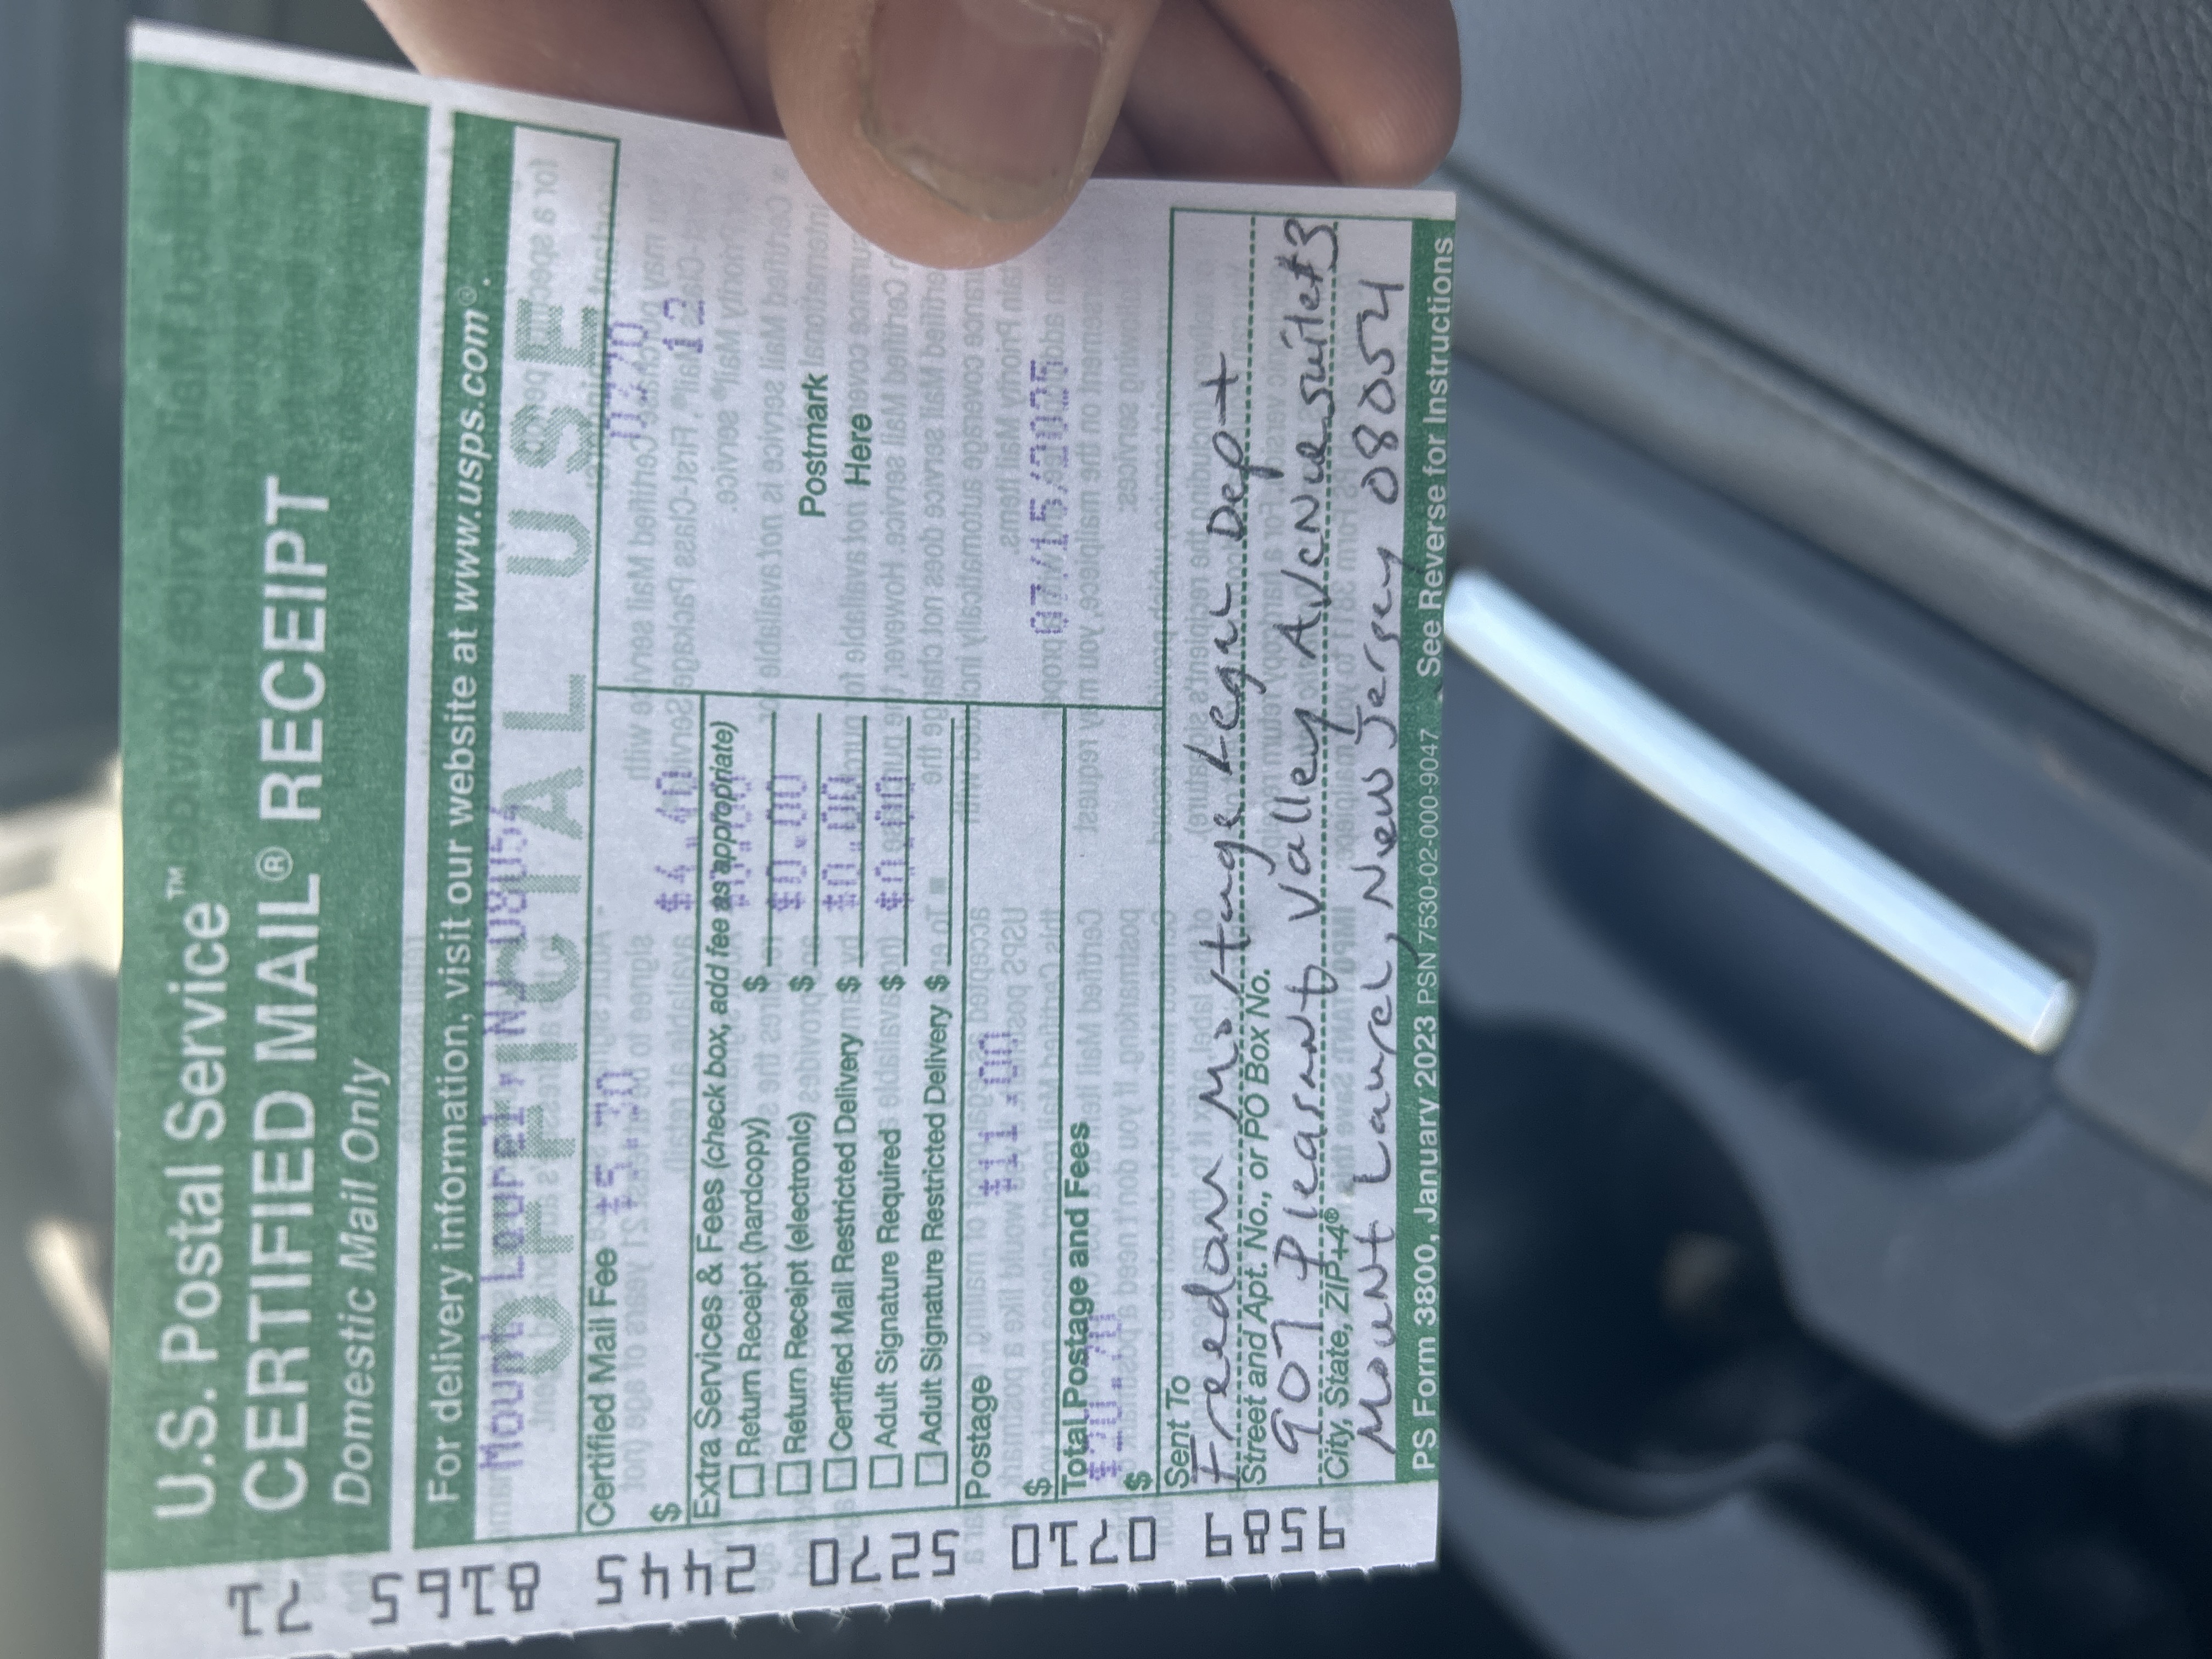 U.S. Postal Service™
CERTIFIED MAIL® RECEIPT
Domestic Mail Only
For delivery information, visit our website at www.usps.com®.
Mount Laurel, NJ 08054
OFFICIAL USE
Certified Mail Fee $5.30
$
$4.40
0770
12
Extra Services & Fees (check box, add fee as appropriate)
$0.00
Return Receipt (hardcopy) $
Return Receipt (electronic) $ $0.00
Certified Mail Restricted Delivery $ $0.00
Adult Signature Required $ $0.00
Adult Signature Restricted Delivery $
Postmark
Here
Postage $11.00
$
07/15/2025
Total Postage and Fees
$20.70
$
Sent To
Freedom Mortgage Legal Dept
Street and Apt. No., or PO Box No.
907 Pleasant Valley Avenue suite#3
City, State, ZIP+4®
Mount Laurel, New Jersey 08054
PS Form 3800, January 2023 PSN 7530-02-000-9047 See Reverse for Instructions
9589 0710 5270 2445 8165 71